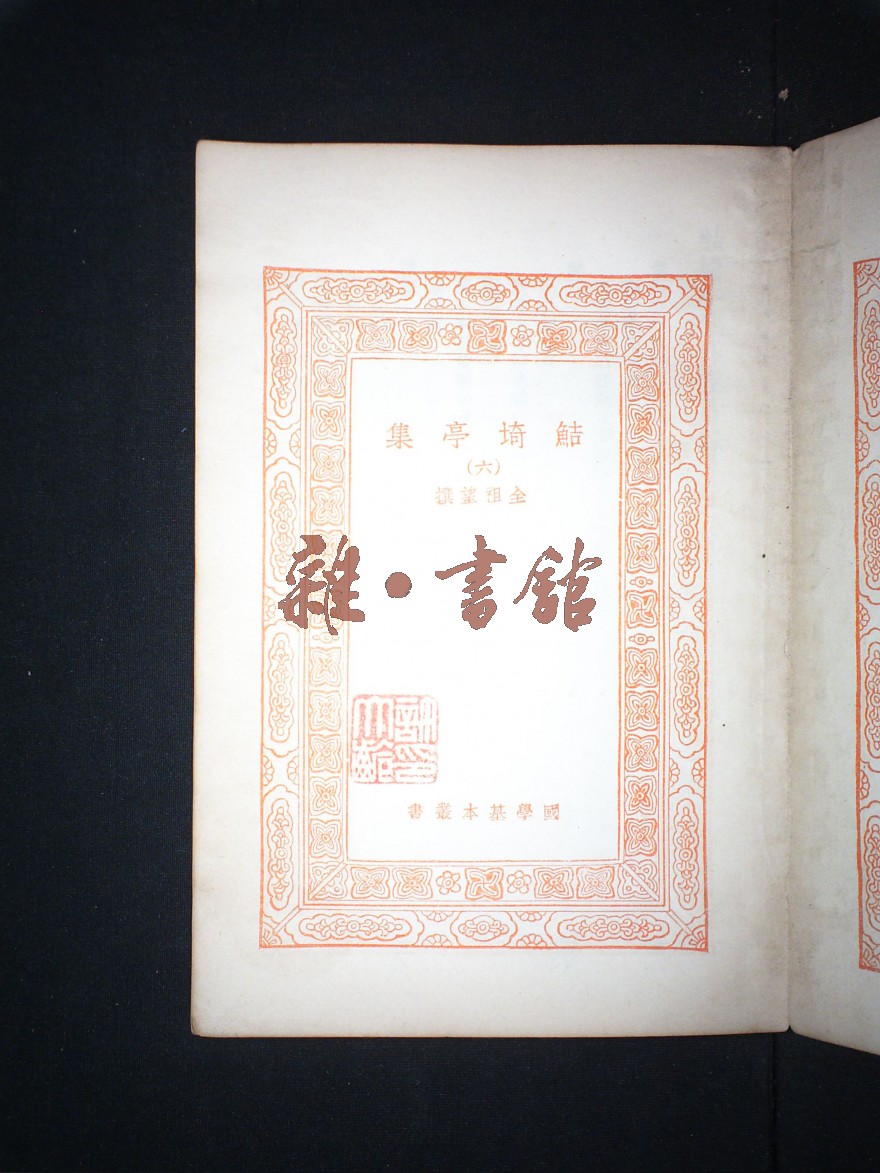 鮚埼亭集
(六)
全祖望撰
雜·書館
國學基本叢書